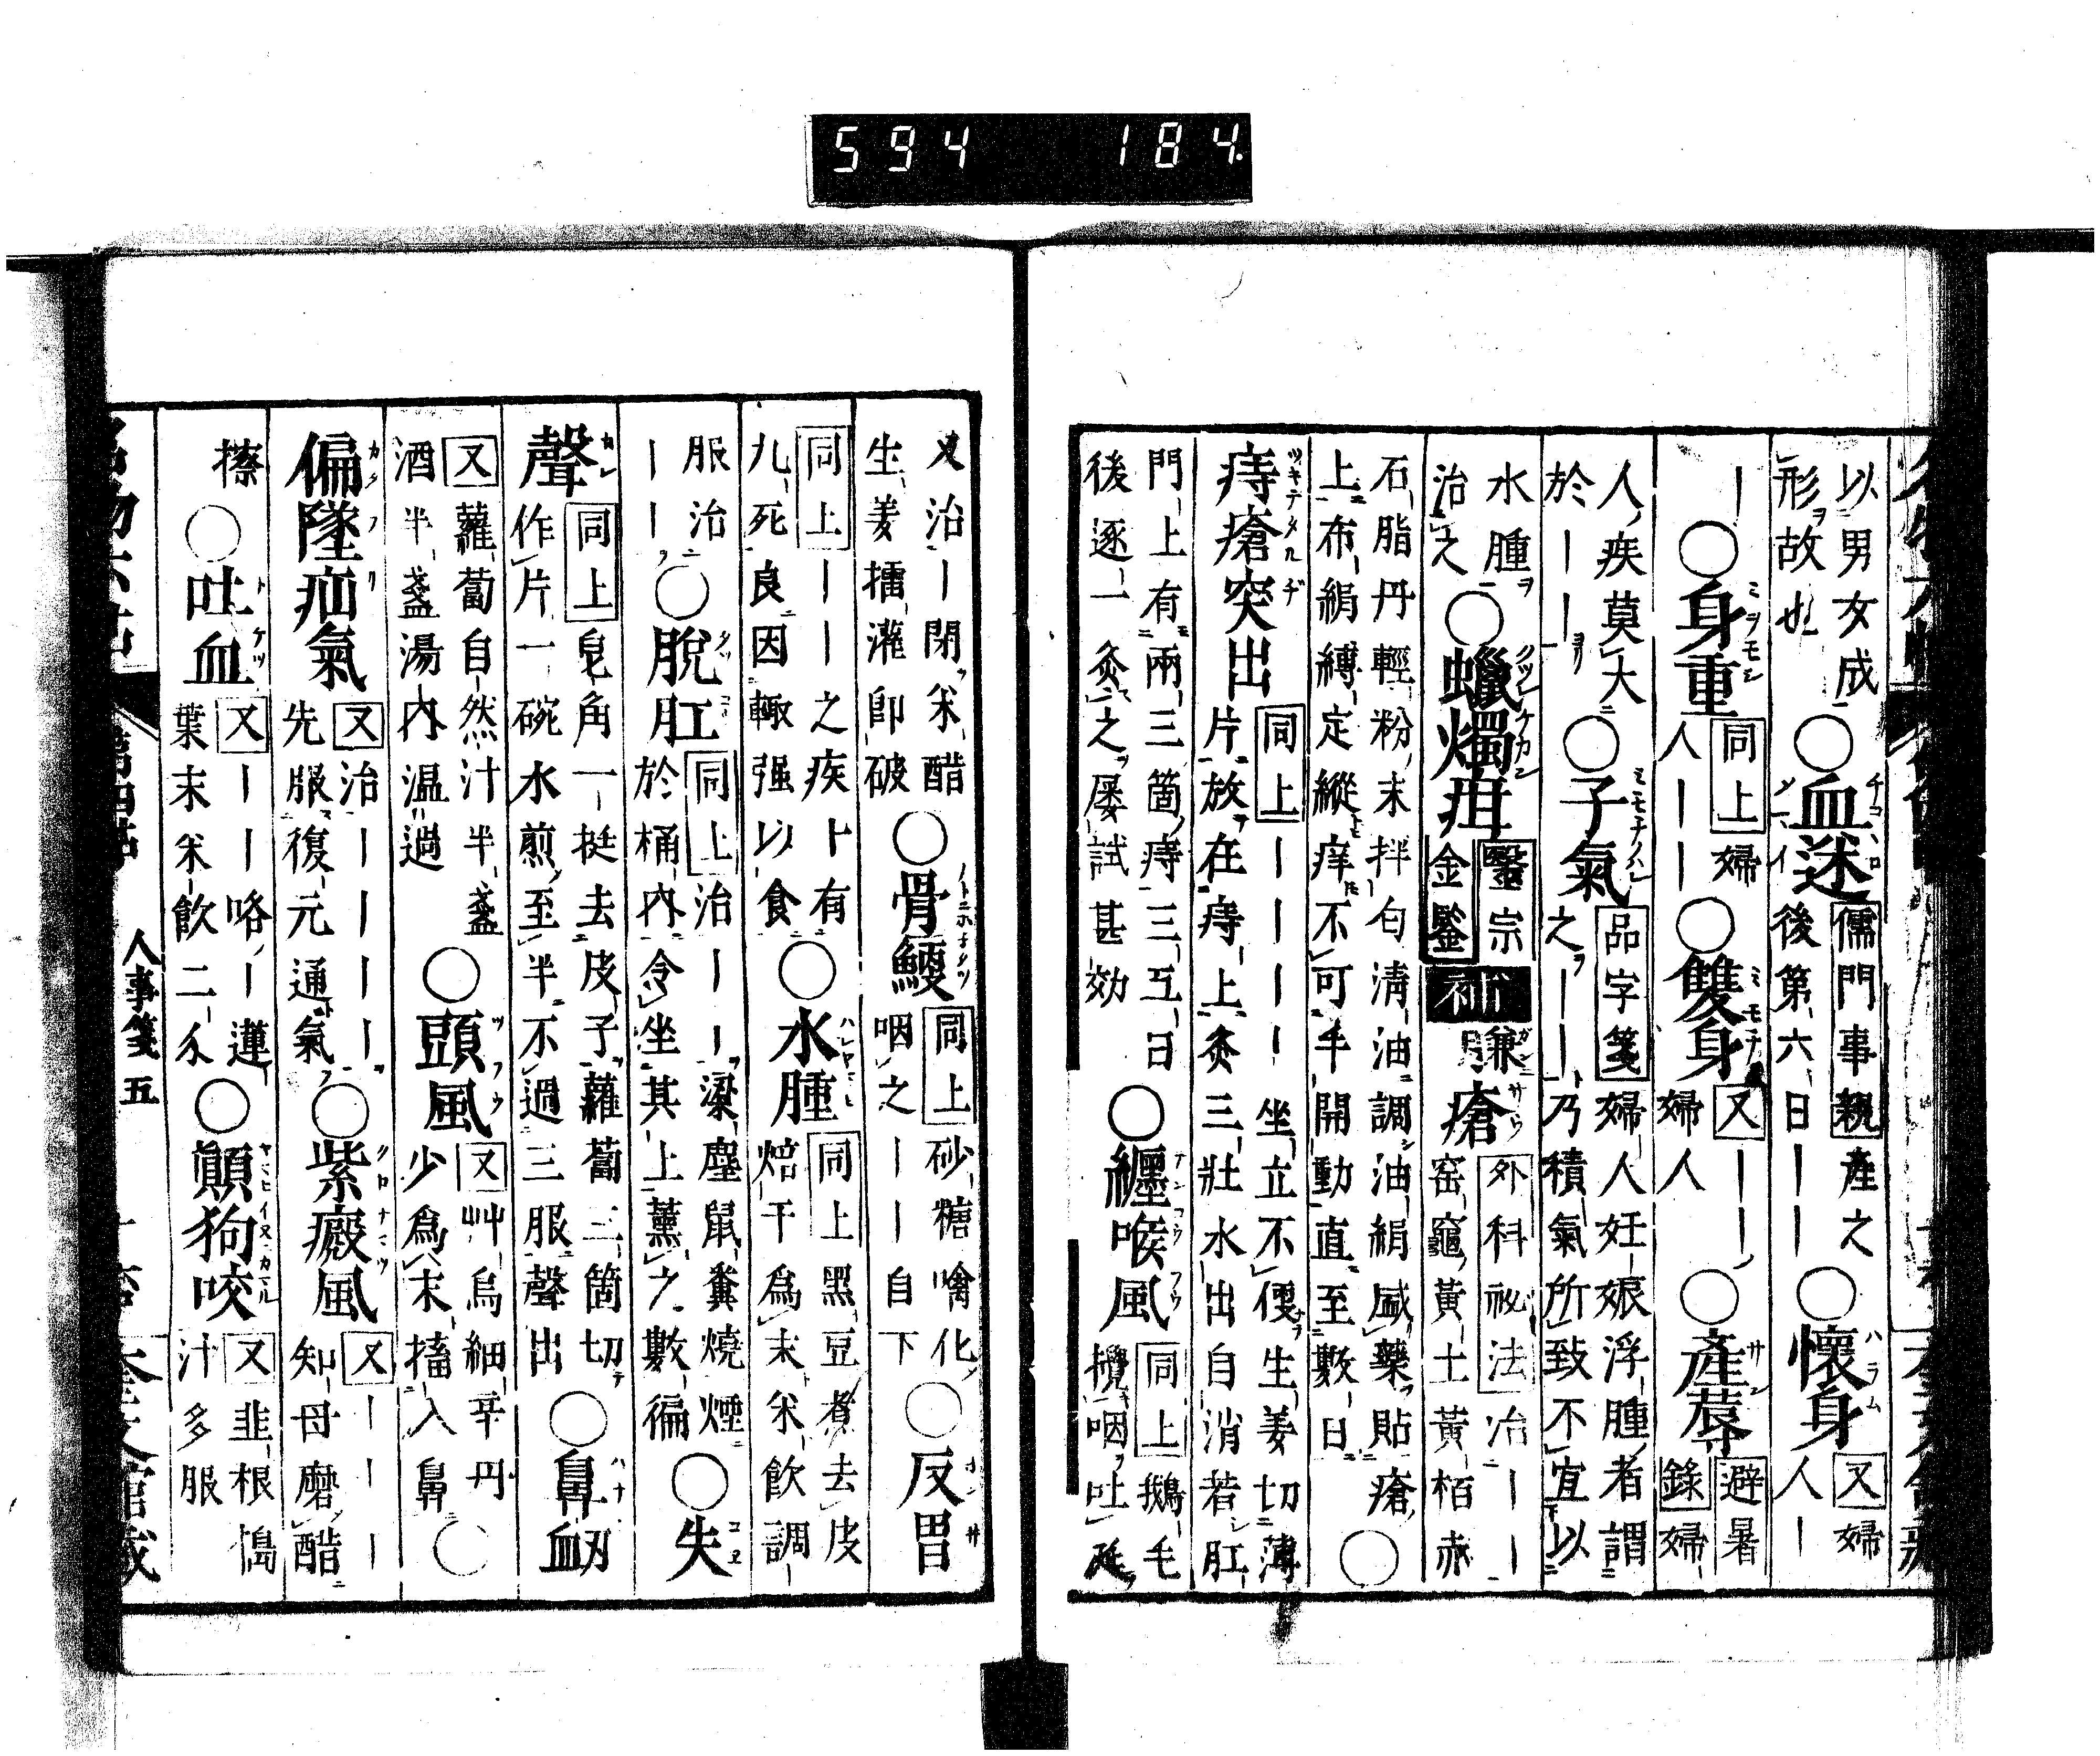 594 184
以男女成
形故也
○血迷
儒門事親
產之
後第六日｜｜
○懷身
又
婦
人｜
｜○身重
同上
婦
人｜｜
○雙身
又
｜｜
婦人
○產蓐
避暑
錄
婦
人疾莫大
於｜｜
○子氣
品字箋
婦人妊娠浮腫者謂
之｜｜乃積氣所致不宜以
水腫
治之
○蠟燭疳
醫宗
金鑒
補
臁瘡
外科祕法
治｜｜
窑竈黃土黃栢赤
石脂丹輕粉末拌匀淸油調油絹盛藥貼瘡
上布絹縛定縱痒不可手開動直至數日
○
痔瘡突出
同上
｜｜｜｜坐立不便生姜切薄
片放在痔上灸三壯水出自消若肛
門上有兩三箇痔三五日
後逐一灸之屡試甚効
○纏喉風
同上
鵝毛
攪咽吐涎
又治｜閉米醋
生姜擂灌卽破
○骨鯁
同上
砂糖噙化
咽之｜｜自下
○反胃
同上
｜｜之疾十有
九死良因輙强以食
○水腫
同上
黑豆煮去皮
焙干爲末米飲調
服治
｜｜
○脫肛
同上
治｜｜梁塵鼠糞燒煙
於桶內令坐其上薰之數徧
○失
聲
同上
皂角一挺去皮子蘿蔔三箇切
作片一碗水煎至半不過三服聲出
○鼻衂
又
蘿蔔自然汁半盞
酒半盞湯內温過
○頭風
又
艸烏細辛丹
少爲末搐入鼻
○
偏墜疝氣
又
治｜｜｜｜
先服復元通氣
○紫癜風
又
｜｜｜
知母磨醋
擦
○吐血
又
｜｜咯｜蓮
葉末米飲二分
○顚狗咬
又
韭根搗
汁多服
人事箋 五